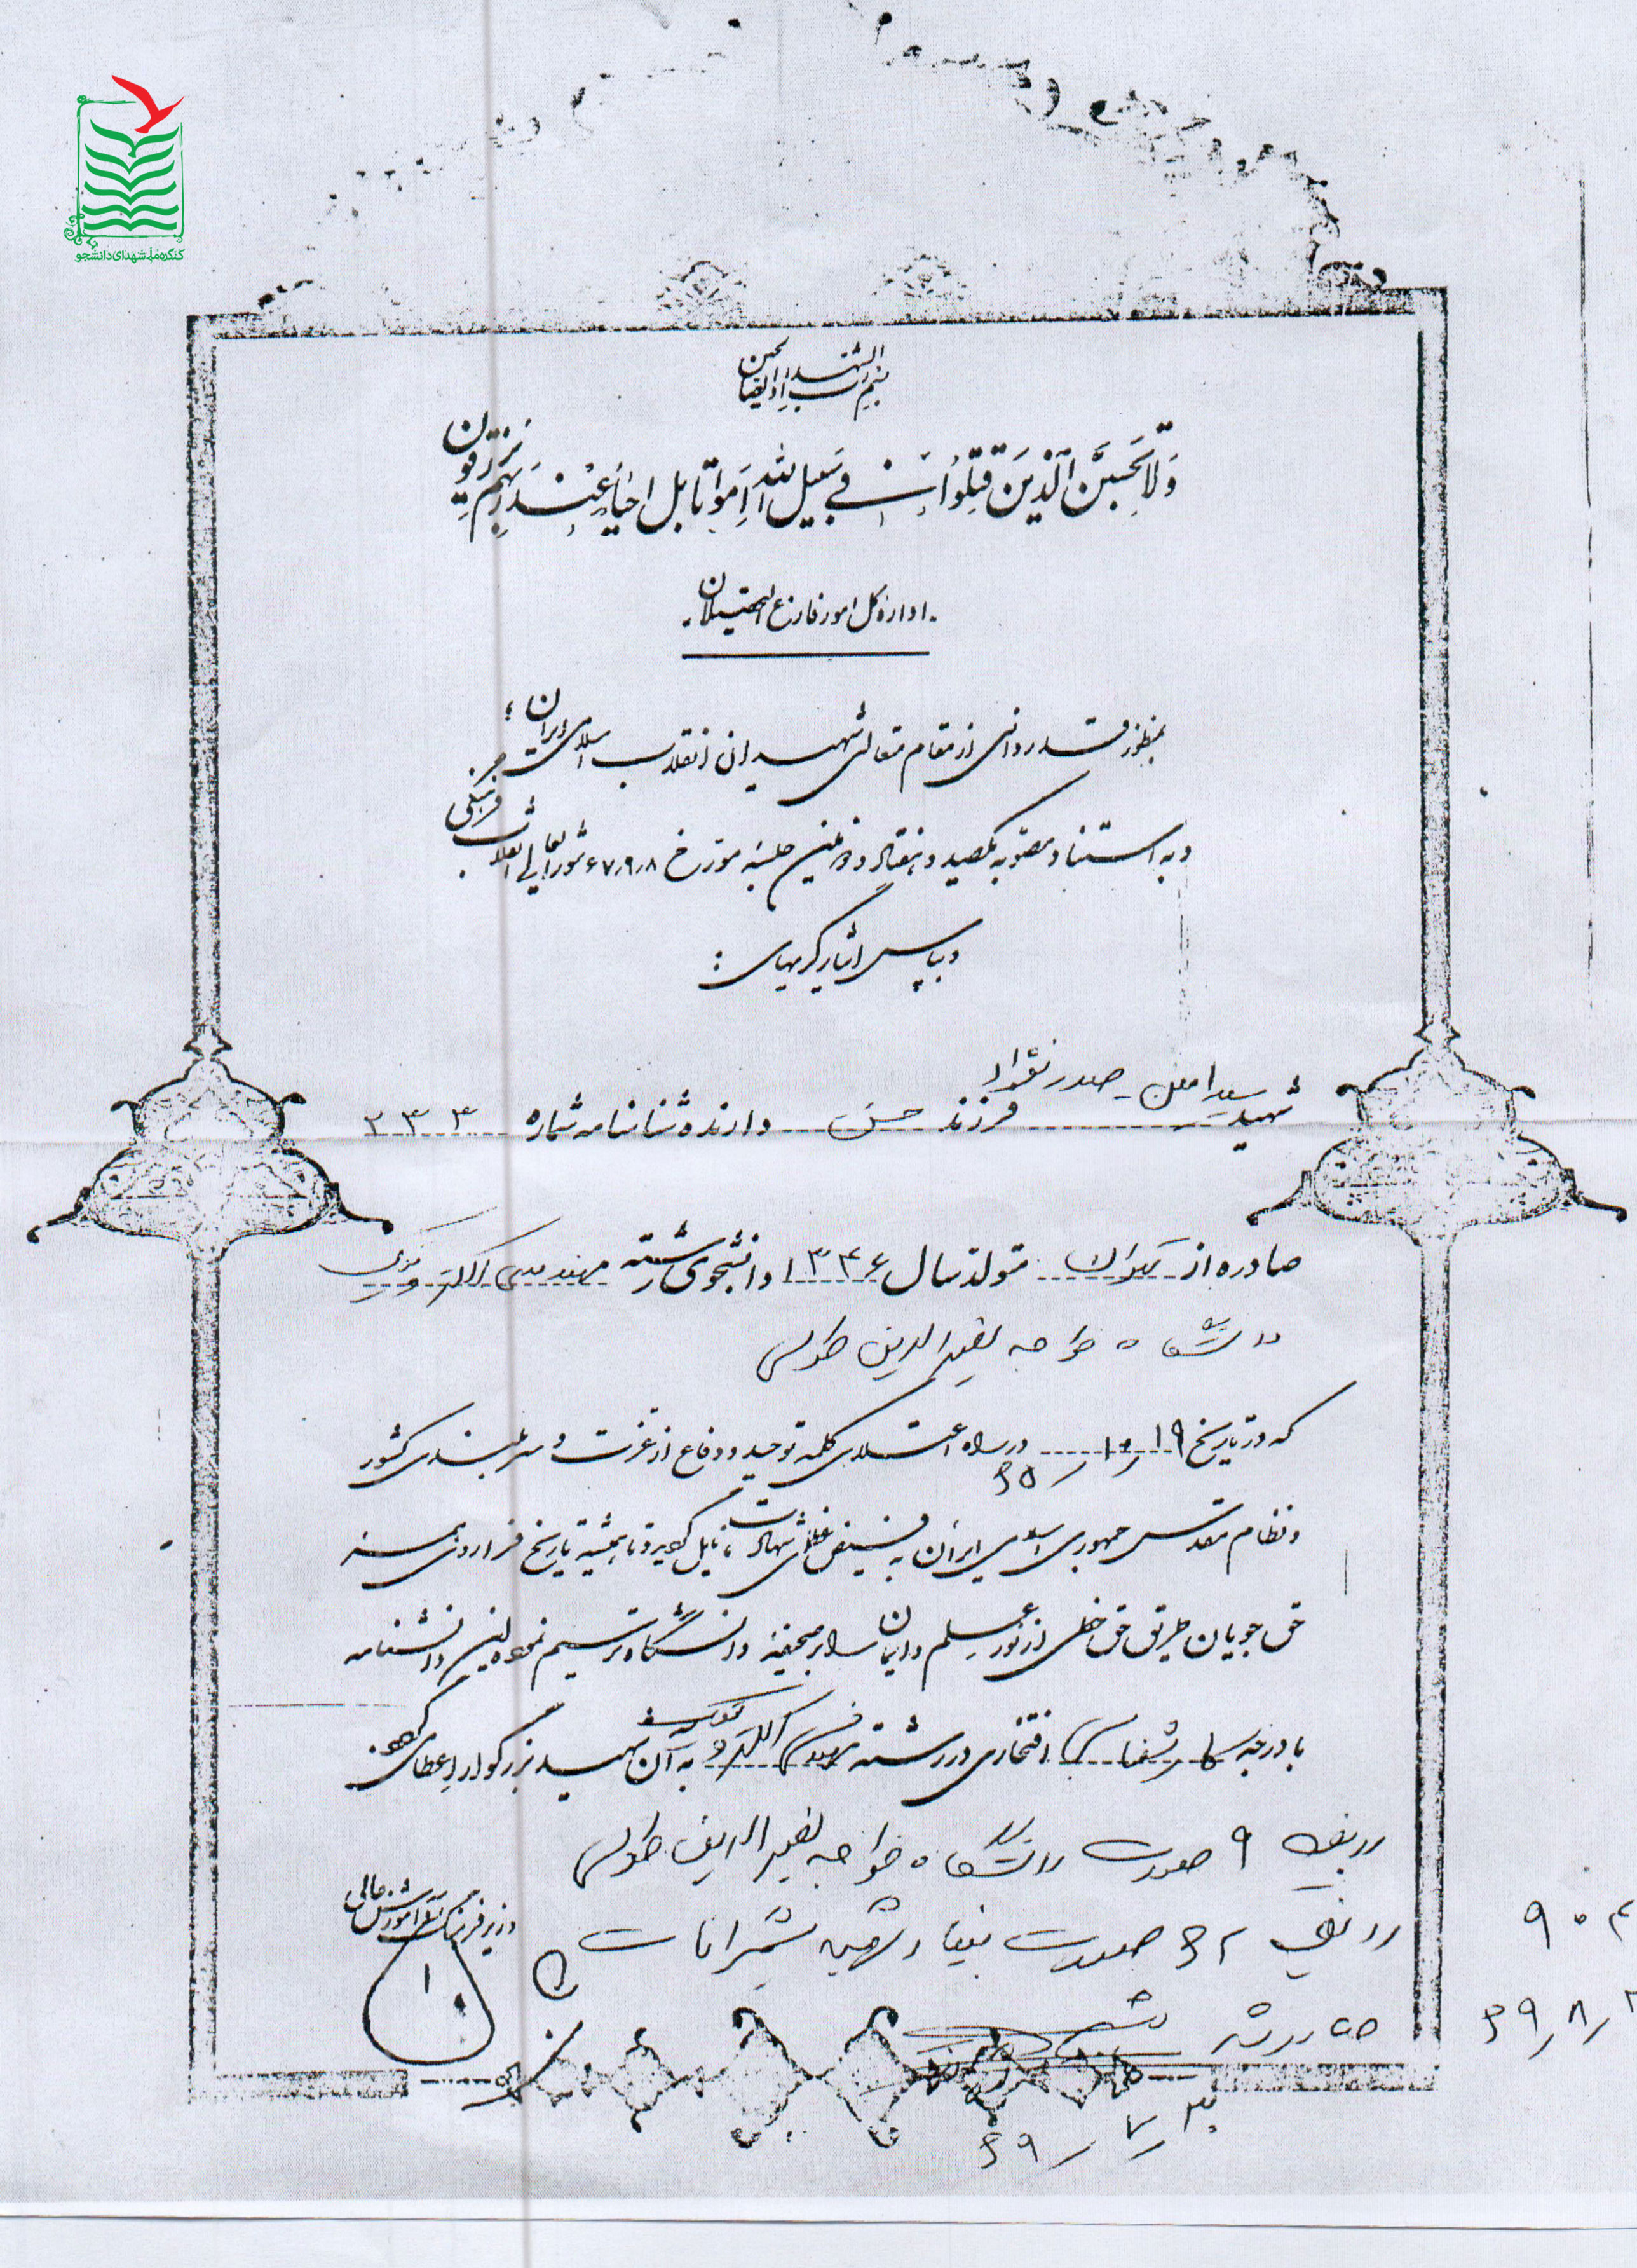 کنگره ملی شهدای دانشجو
بسم رب الشهداء والصدیقین
وَلا تَحسَبَنَّ الَّذینَ قُتِلوُا فی سَبیلِ اللهِ اَمواتا بل احیاءٌ عِندَ رَبِّهِم یُرزَقون
اداره کل امور فارغ التحصیلان
بمنظور قدردانی از مقام متعالی شهیدان انقلاب اسلامی ایران ؛
و به استناد مصوبه یکصد و هفتاد و دومین جلسه مورخ ۶۷٫۹٫۸ شورایعالی انقلاب فرهنگی
و بپاس ایثارگریهای :
شهید سید امین صدرنژاد فرزند حسن دارنده شناسنامه شماره ۲۳۳
صادره از تهران متولد سال ۱۳۴۶ دانشجوی رشته مهندسی الکترونیک
دانشگاه خواجه نصیرالدین طوسی
که در تاریخ ۱۹ر۱۰ر۶۵ در راه اعتلای کلمه توحید و دفاع از عزت و سربلندی کشور
و نظام مقدس جمهوری اسلامی ایران به فیض عظمای شهادت نایل گردید و تا همیشه تاریخ فراروی همه
حق جویان طریق حق خطی از نور علم و ایمان را بر صحیفه دانشگاه ترسیم نمود این دانشنامه
با درجه کارشناسی افتخاری در رشته مهندسی الکترونیک به آن شهید بزرگوار اعطا می گردد.
ردیف ۹ صورت دانشگاه خواجه نصیرالدین طوسی
وزیر فرهنگ و آموزش عالی
ردیف ۶۲ صورت بنیاد شهید شمیرانات
۹۰۴
صادر شد
۶۹ر۸ر
۶۹ر۷ر۳۰